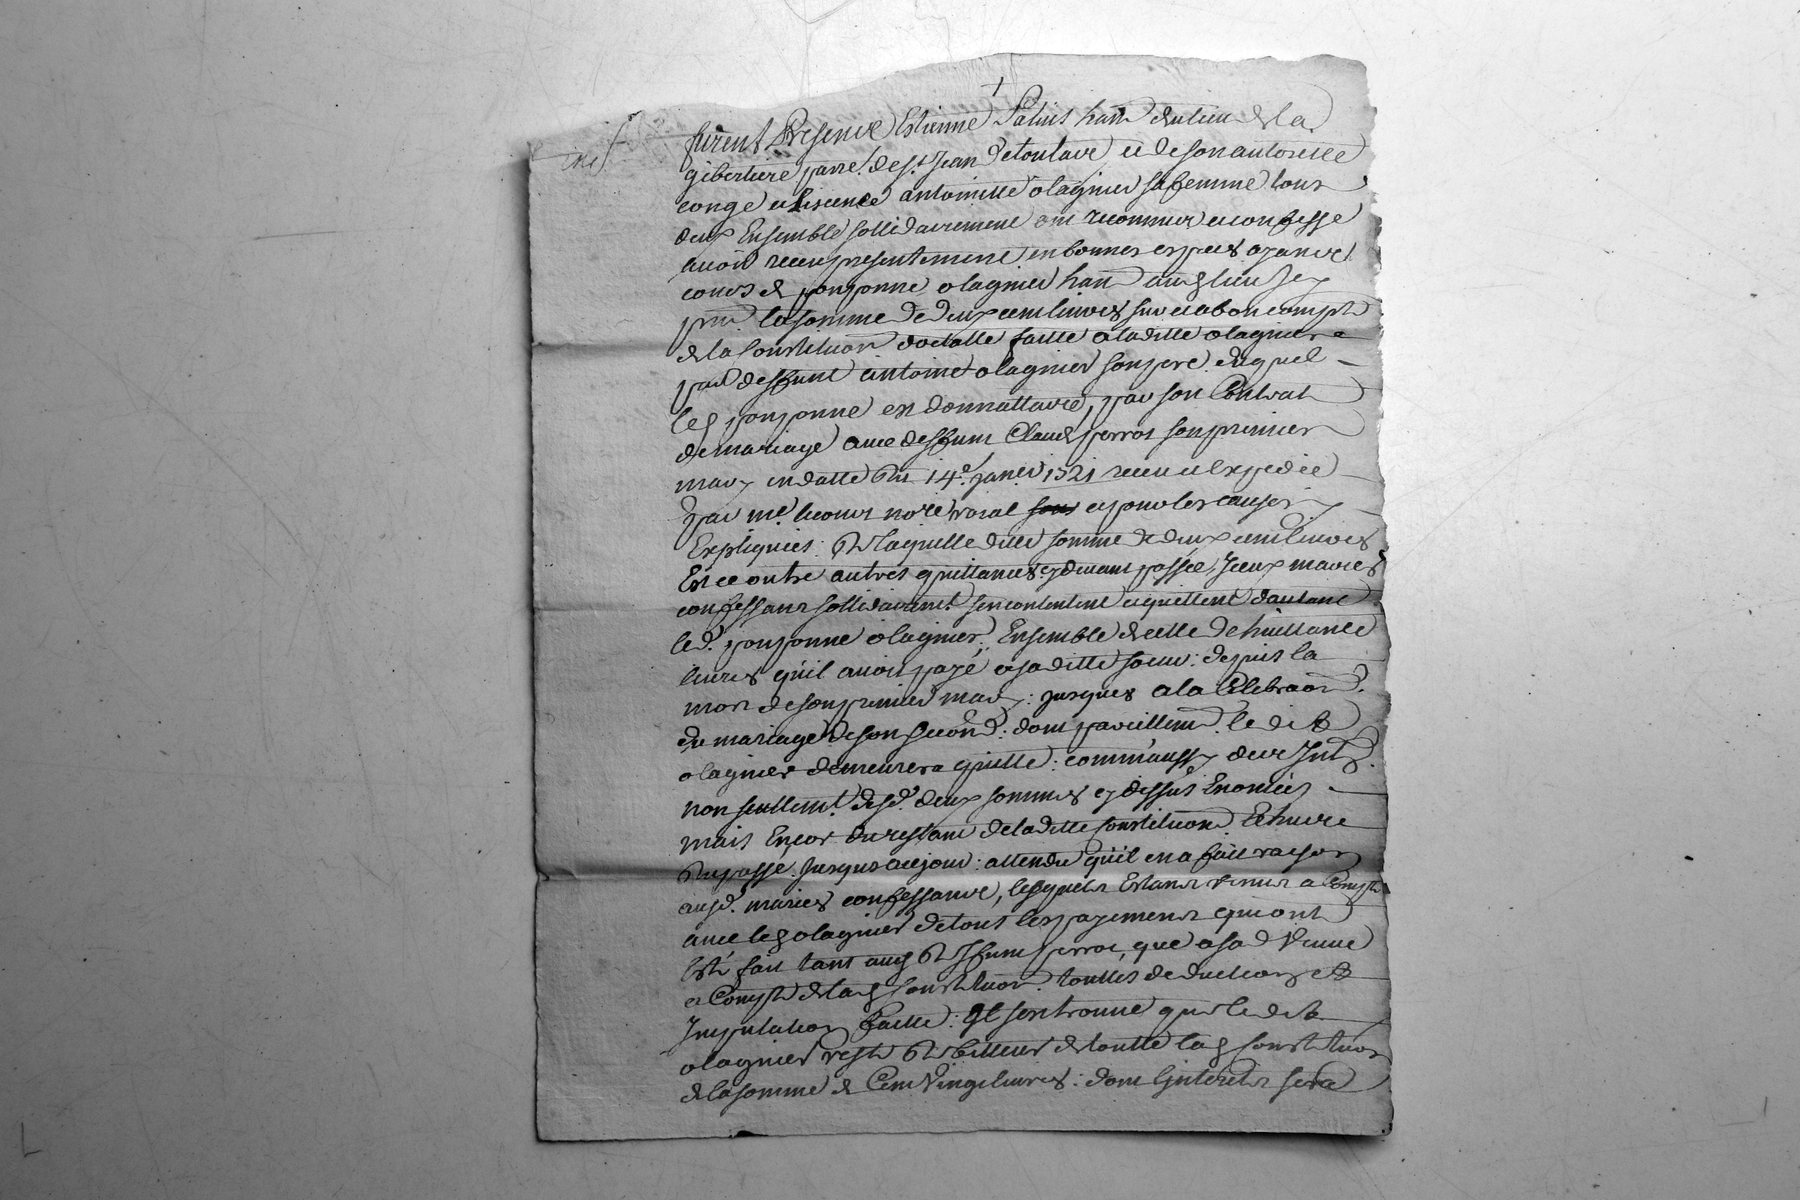 furent Presents Estienne Palins han du lieu de la
gibertiere parre. de st. Jean de toulave et de son autoritte
conge et licence antoinette olagnier sa femme tous
deux Ensemble sollidairement ont reconnus et confesse
avoir receu presentement en bonnes especes ayance
cours de ponponne olagnier han aud lieu Jcy
pnt. la somme de deux cent livres sur et abon compte
de la Constituon dotalle faitte a laditte olagniere
par deffunt antoine olagnier son pere duquel
led ponponne est donnattaire, par son Contrat
de mariage avec deffunt Claude perrot son premier
mary en datte du 14e. janer 1721 receu et expedié
par me. lieour nore roial et pour les causes y
Expliquées: De laquelle ditte somme de deux cent livres
Et ce outre autres quittances cydevant passée, Jceux mariés
confessant sollidairemt. sen contentent et quittent dautant
led. ponponne olagnier. Ensemble de celle de huittante
livres quil avoit payé a saditte soeur: depuis la
mort de son premier mary: jusques a la Celebraon.
du mariage de son second: dont pareillemt. le dit
olagnier demeurera quitte: comm'aussy des Jnts.
non seullemt. desd. deux sommes cy dessus Enoncées
mais Encor du restant de laditte constituon. Echue
du passé. Jusques ace jour: attendu quil en a fait raison
ausd. mariés confessants, lesquels Estants venus a Compte
avec led olagnier de tous les payements qui ont
Esté fait tant aud deffunt perrot, que a sa d veuve
a Compte de lad constituon. touttes deductions et
Jmputation faitte: Jl sest trouvé que le dit
olagnier reste debitteur de toutte lad constituon
de la somme de Cent Vingt livres: dont linterets sera